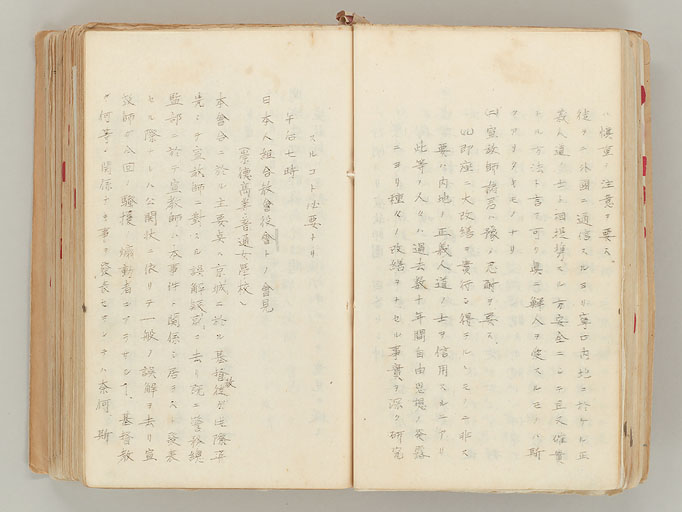 ハ慎重ノ注意ヲ要ス。
徒ラニ外国ニ通信スルヨリ寧ロ内地ニ於ケル正
義人道ノ士ト相提携スル方安全ニシテ且又確実
ナル方法ト言フ可ク真ニ鮮人ヲ愛スルモノハ斯
クアリタキモノナリ
(二)宣教師諸君ハ猶ホ忍耐ヲ要ス、
(1)即座ニ大改繕ヲ実行シ得ベキモノニ非ス
要ハ内地ノ正義人道ノ士ヲ信用スルニアリ
此等ノ人々ハ過去数十年間自由思想ノ発露
ニヨリ種々ノ改繕ヲナセル事実ヲ深ク研究
スルコト必要ナリ
午后七時
日本人組合教會役會トノ會見
(崇徳高等普通女学校)
本會合ニ於ル主要点ハ京城ニ於ル基督教徒ガ此際率
先シテ宣教師ニ対スル誤解疑惑ヲ去リ既ニ警務総
監部ニ於テ宣教師ハ本事件ニ関係シ居ラスト発表
セル際ナレハ公開状ニ依リテ一般ノ誤解ヲ去リ宣
教師ガ今回ノ騒擾ノ煽動者ニアラサルコト、基督教
ガ何等ノ関係ナキ事ヲ発表セラレテハ奈何 斯